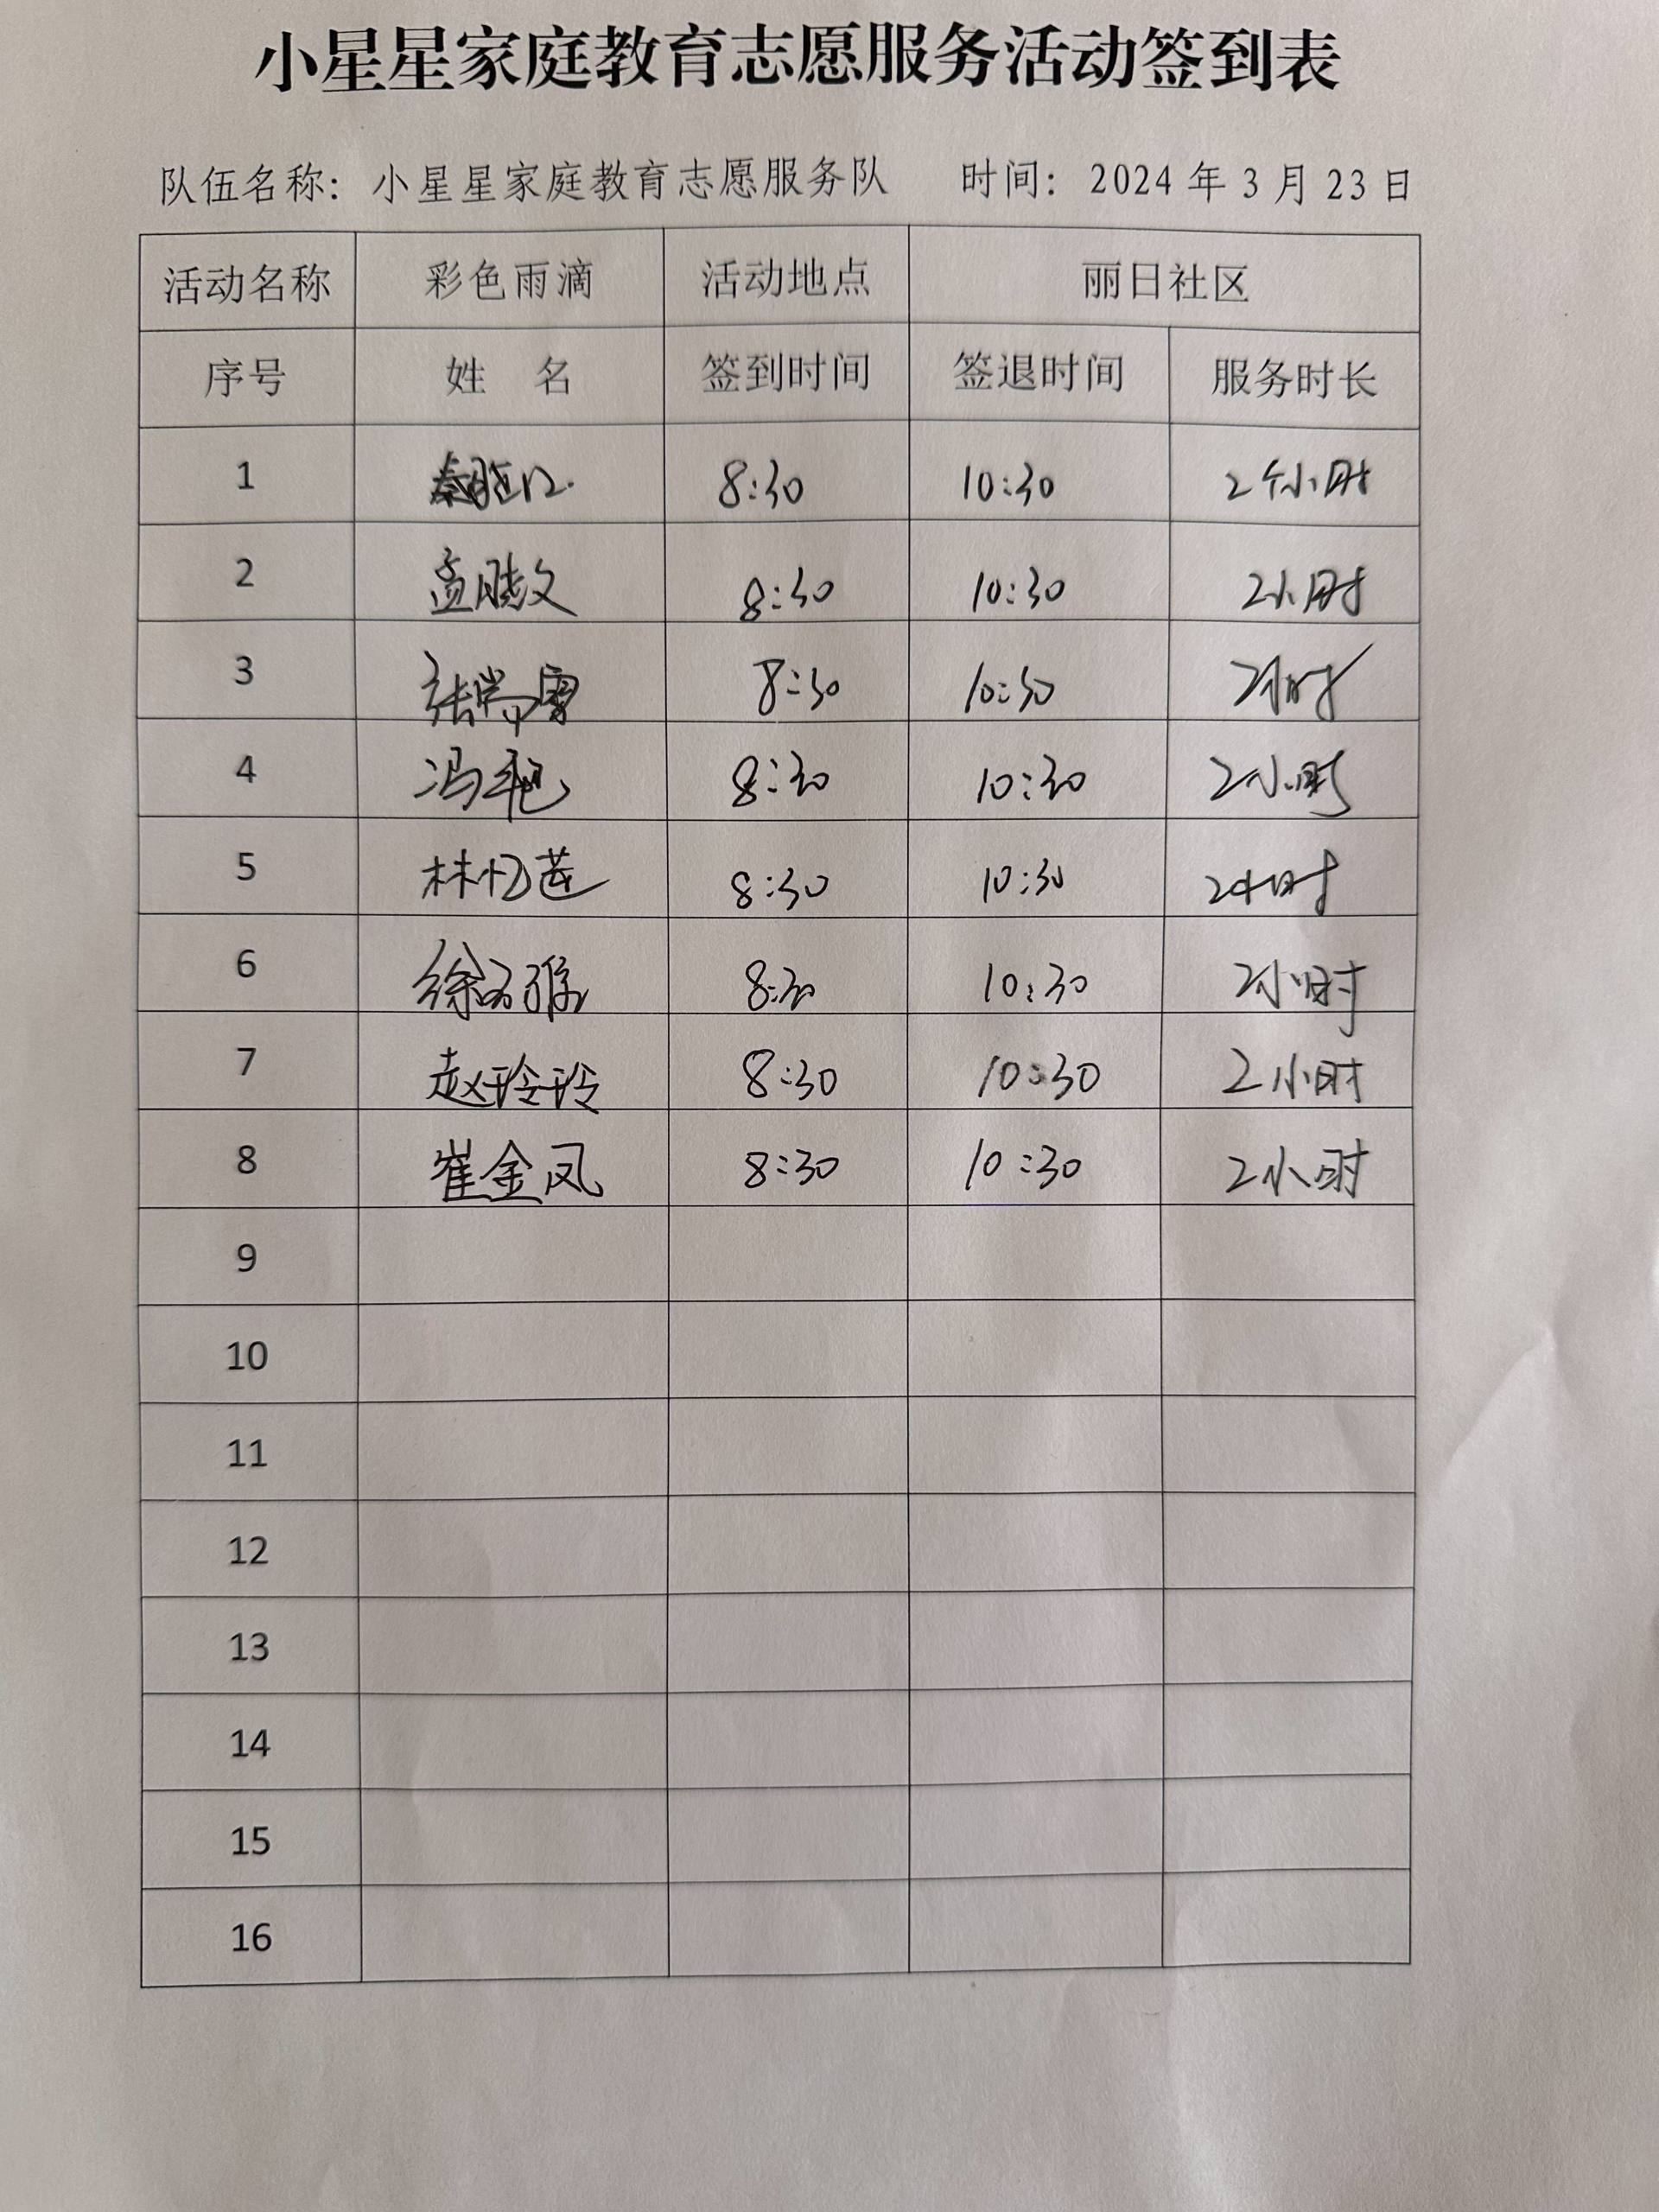 小星星家庭教育志愿服务活动签到表
队伍名称：小星星家庭教育志愿服务队 时间：2024 年 3 月 23 日
活动名称 彩色雨滴 活动地点 丽日社区
序号 姓 名 签到时间 签退时间 服务时长
1 8:30 10:30 2个小时
2 孟晓文 8:30 10:30 2小时
3 8:30 10:30 2小时
4 冯艳 8:30 10:30 2小时
5 林忆莲 8:30 10:30 2小时
6 8:30 10:30 2小时
7 赵玲玲 8:30 10:30 2小时
8 崔金凤 8:30 10:30 2小时
9
10
11
12
13
14
15
16